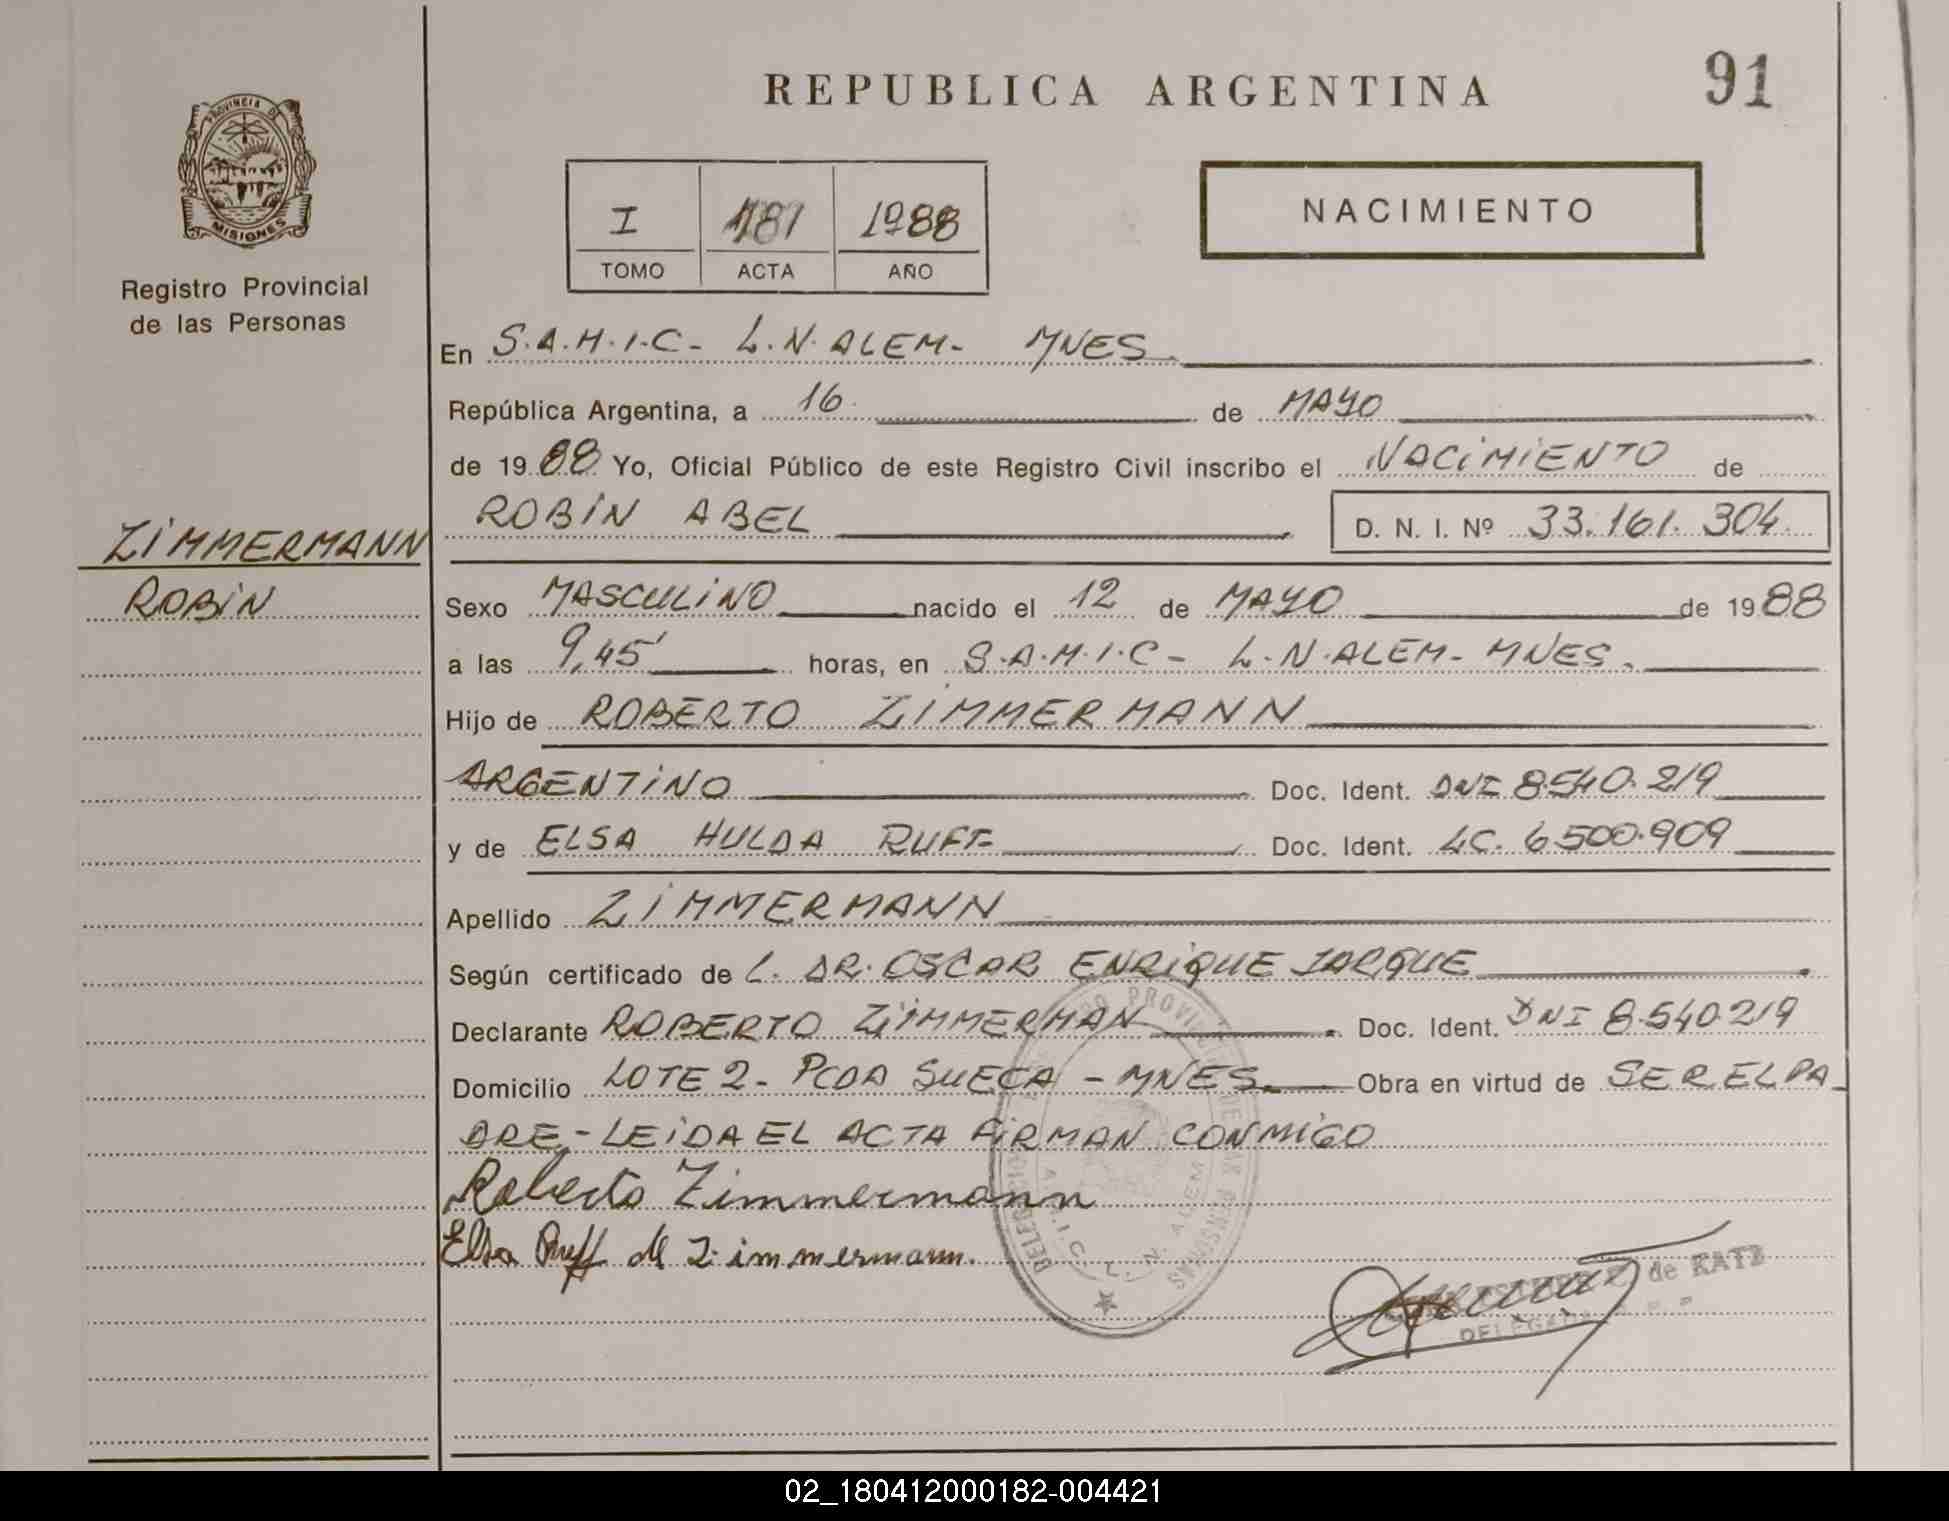 REPUBLICA ARGENTINA
91
PROVINCIA DE
MISIONES
Registro Provincial
de las Personas
I 181 1988
TOMO ACTA AÑO
NACIMIENTO
En S.A.M.I.C- L.N.ALEM- MNES.
República Argentina, a 16 de MAYO
de 1988 Yo, Oficial Público de este Registro Civil inscribo el NACIMIENTO de
ROBIN ABEL D. N. I. Nº 33.161.304
ZIMMERMANN
ROBIN
Sexo MASCULINO nacido el 12 de MAYO de 1988
a las 9,45' horas, en S.A.M.I.C- L.N.ALEM- MNES.
Hijo de ROBERTO ZIMMERMANN
ARGENTINO Doc. Ident. DNI 8.540.219
y de ELSA HULDA RUFF Doc. Ident. LC. 6.500.909
Apellido ZIMMERMANN
Según certificado de L. DR. OSCAR ENRIQUE JARQUE
Declarante ROBERTO ZIMMERMAN Doc. Ident. DNI 8.540.219
Domicilio LOTE 2- PCDA SUECA - MNES. Obra en virtud de SER EL PA
DRE- LEIDA EL ACTA FIRMAN CONMIGO
Roberto Zimmermann
Elsa Ruff de Zimmermann.
de KATZ
DELEGADA
02_180412000182-004421